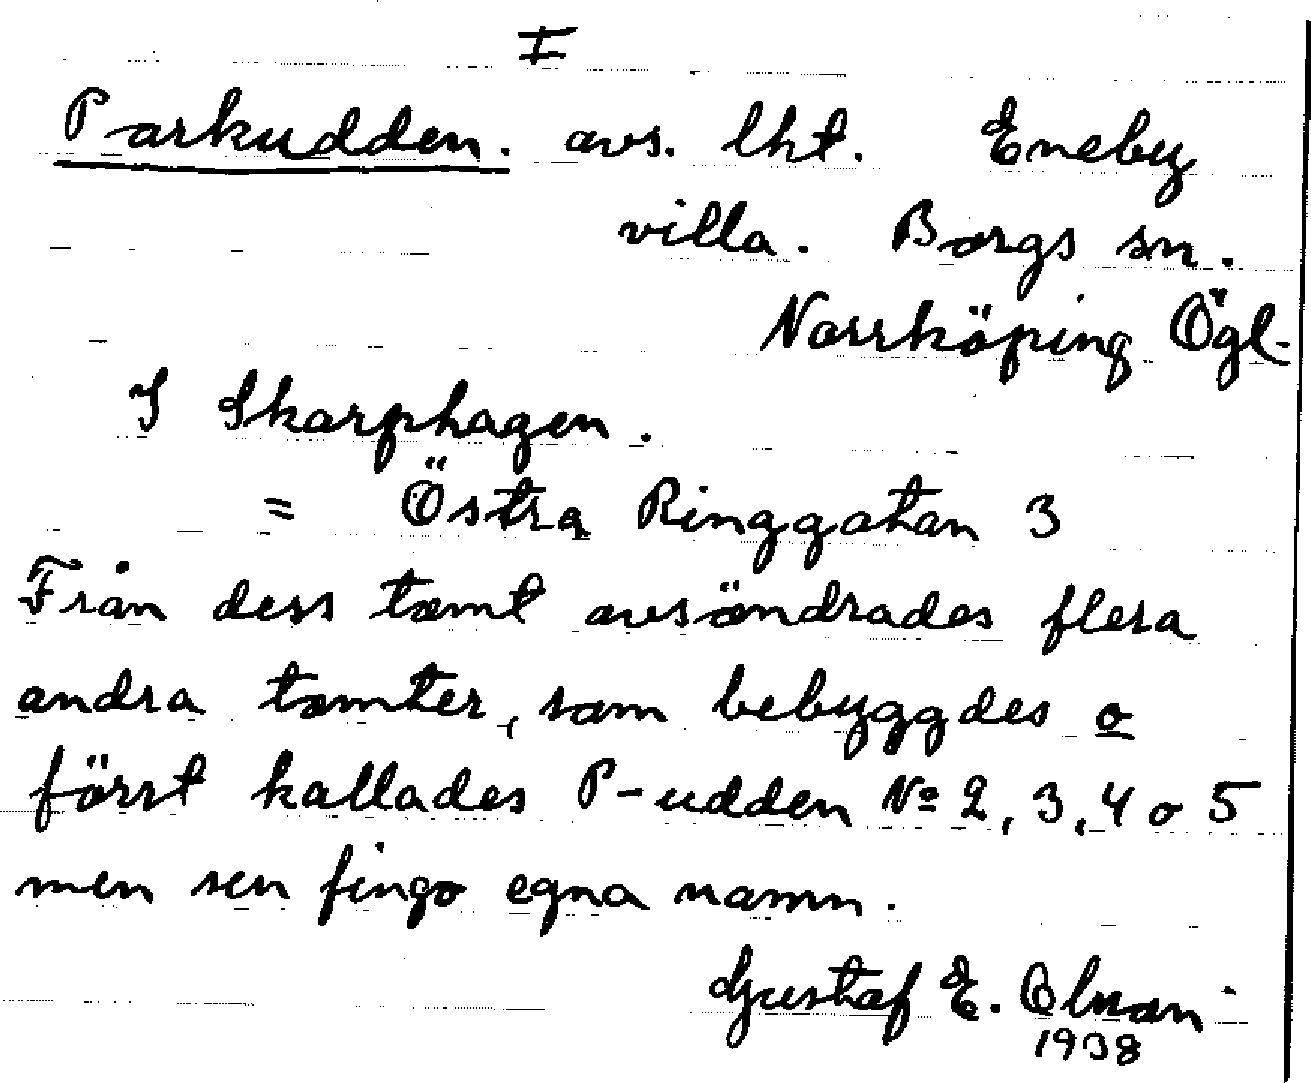 I
Parkudden. avs. lht. Eneby
villa. Borgs sn.
Norrköping Ögl.
I Skarphagen.
= Östra Ringgatan 3
Från dess tomt avsöndrades flera
andra tomter, som bebyggdes o
först kallades P-udden Nº 2, 3, 4 o 5
men sen fingo egna namn.
Gustaf E.
1938